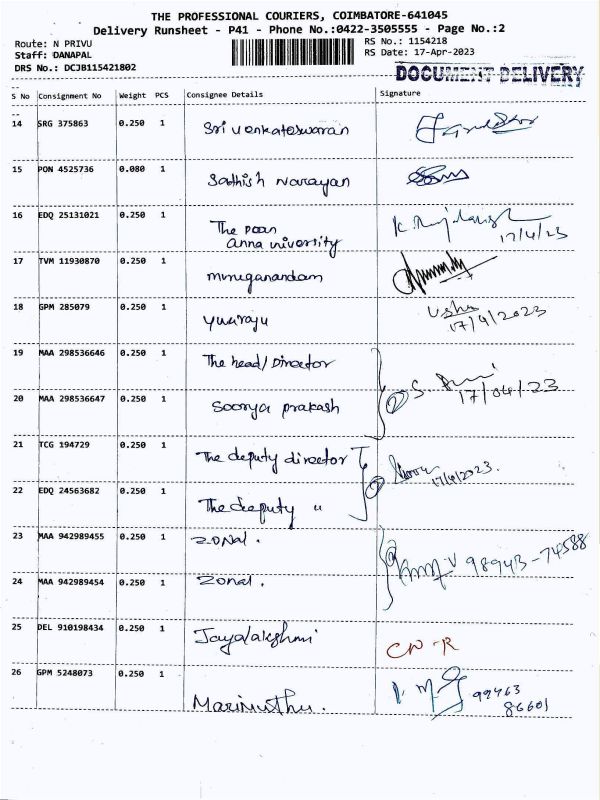 THE PROFESSIONAL COURIERS, COIMBATORE-641045
Delivery Runsheet - P41 - Phone No.:0422-3505555 - Page No.:2
Route: N PRIVU
RS No.: 1154218
Staff: DANAPAL
RS Date: 17-Apr-2023
DRS No.: DCJB115421802
DOCUMENT DELIVERY
S No Consignment No Weight PCS Consignee Details Signature
14 SRG 375863 0.250 1 Sri Venkateswaran
15 PON 4525736 0.080 1 Sathish Narayan
16 EDQ 25131021 0.250 1 The Dean
anna university 17/4/23
17 TVM 11930870 0.250 1 muruganandam
18 GPM 285079 0.250 1 yuviraju Usha
17/4/2023
19 MAA 298536646 0.250 1 The head/Director
20 MAA 298536647 0.250 1 Soorya prakash ② S. 17/04/23
21 TCG 194729 0.250 1 The deputy director
17/4/2023.
22 EDQ 24563682 0.250 1 The deeputy " ②
23 MAA 942989455 0.250 1 ZONal. 98943-74588
24 MAA 942989454 0.250 1 Zonal.
25 DEL 910198434 0.250 1 Jayalakshmi CN-R
26 GPM 5248073 0.250 1 Marimuthu. 99463
86601